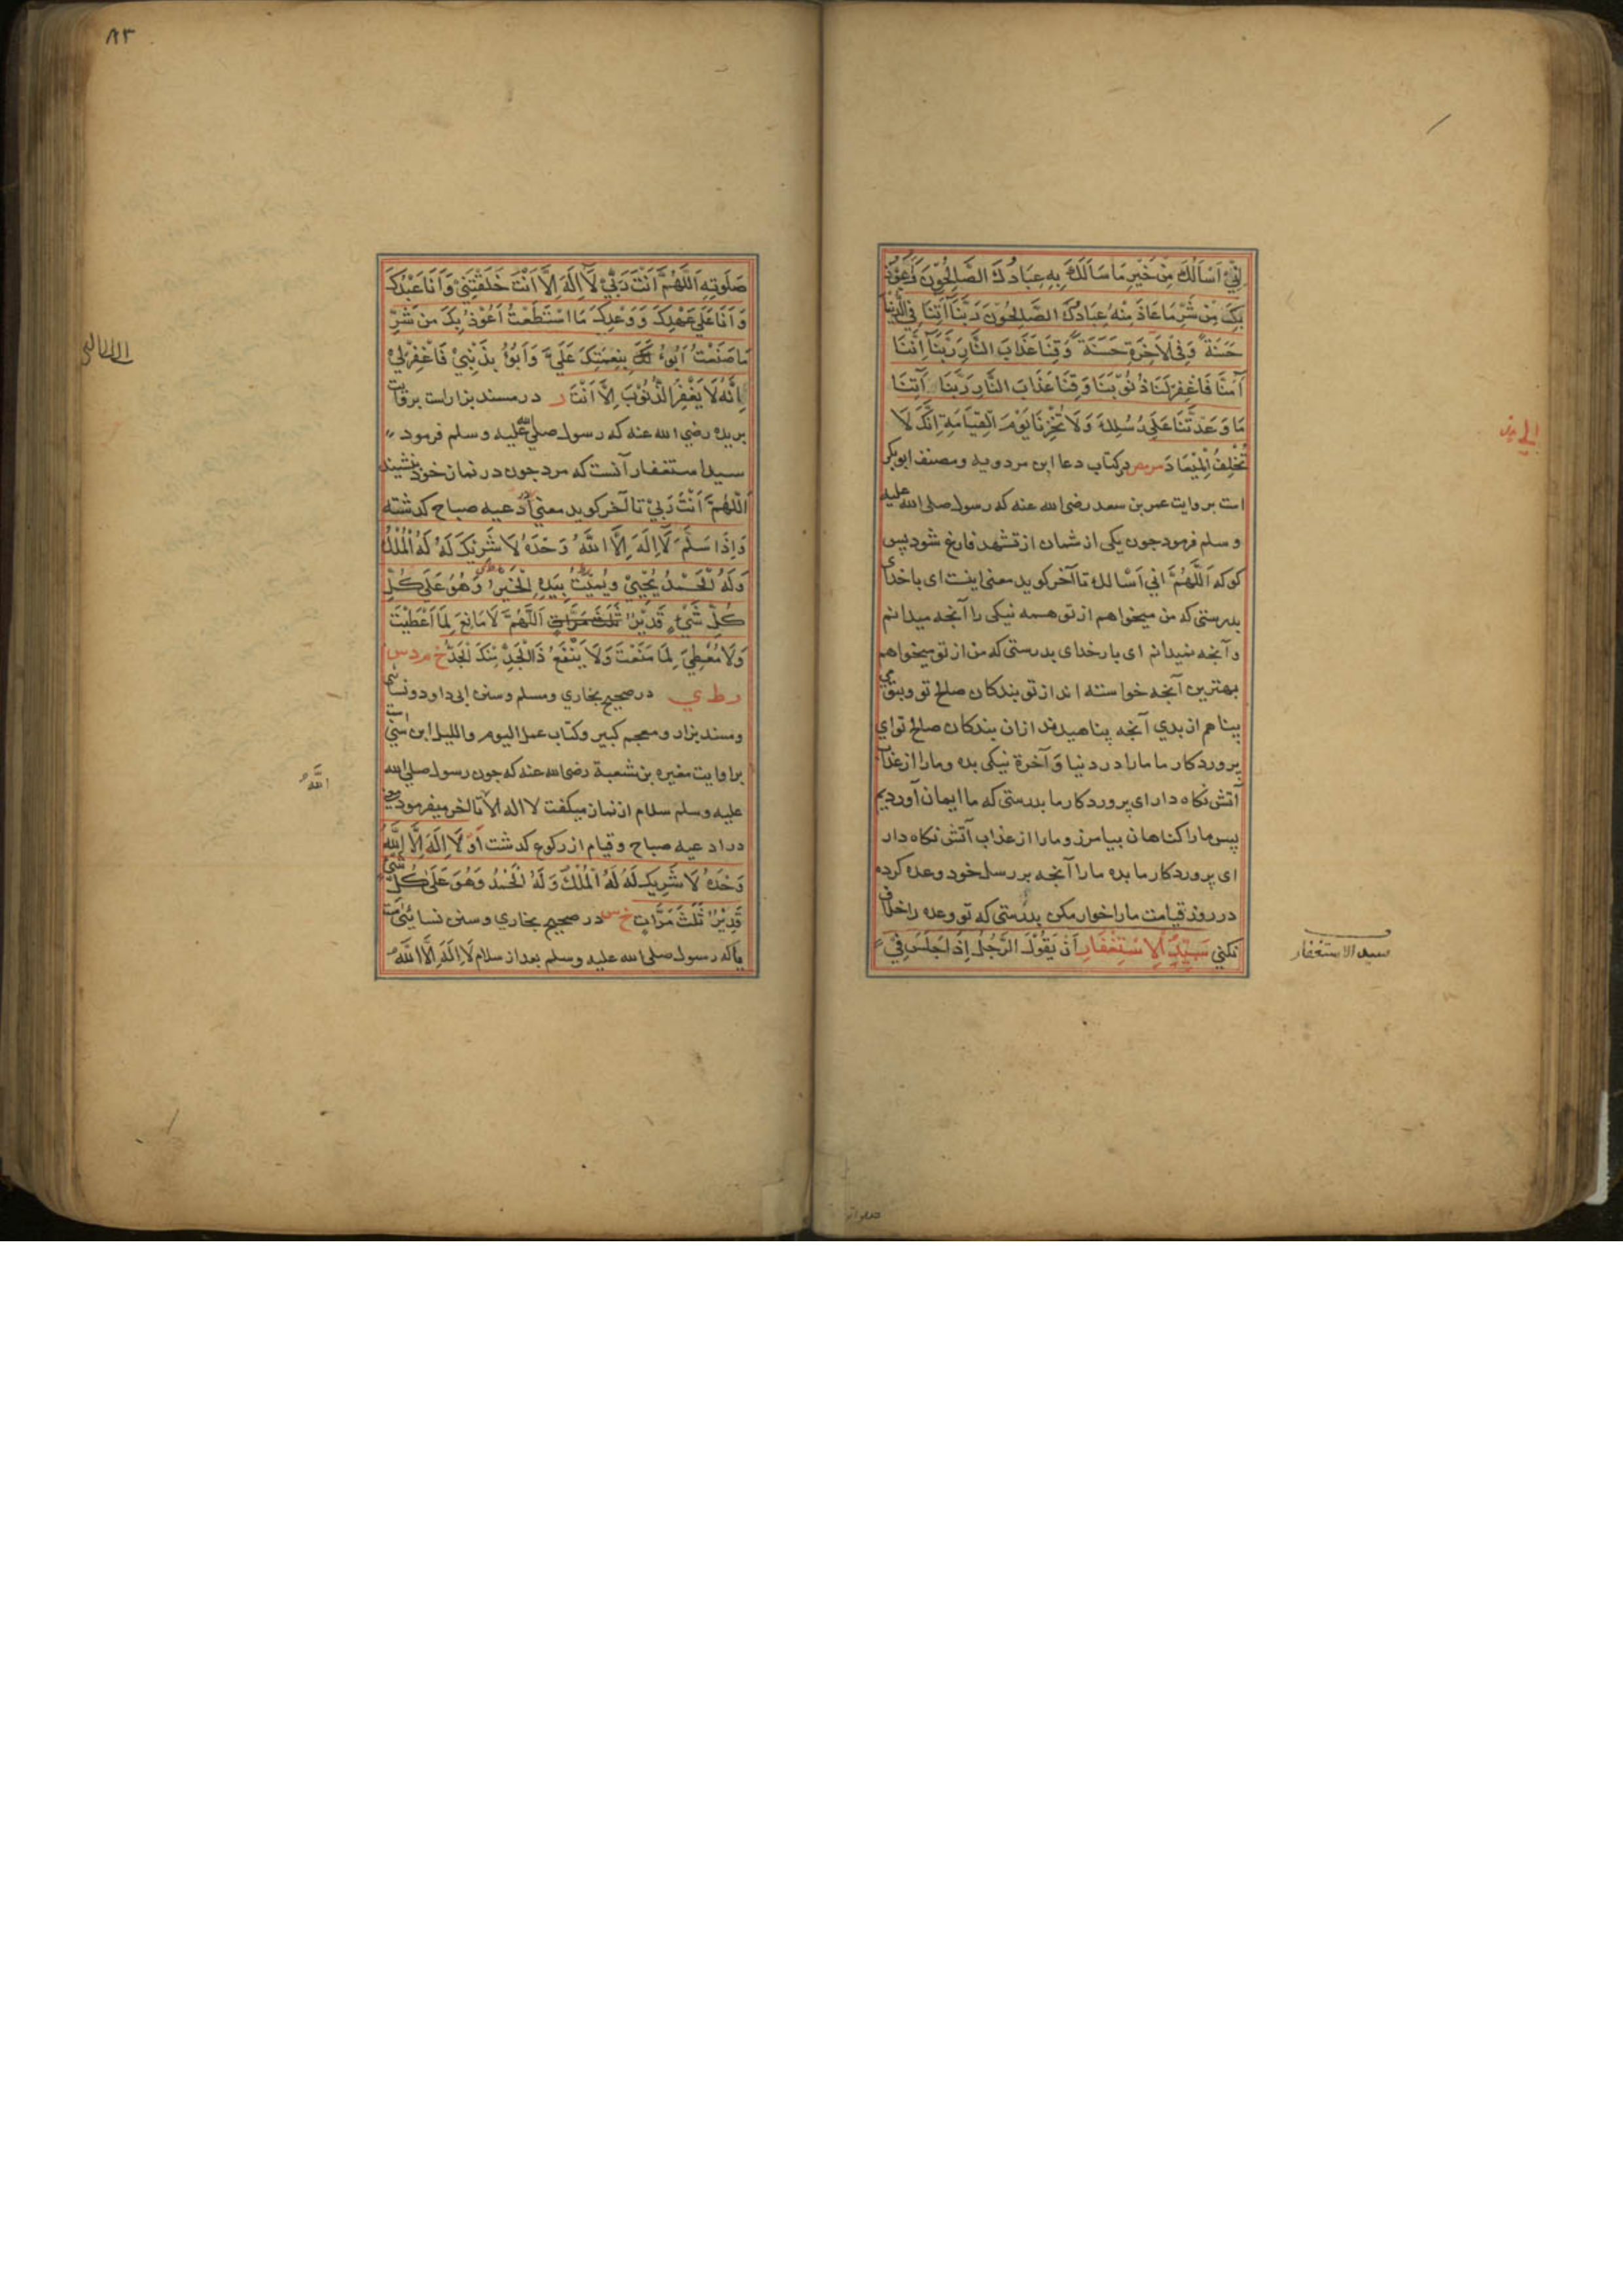 اِنِّيْ اَسْاَلُكَ مِنْ خَيْرِ مَا سَاَلَكَ بِهِ عِبَادُكَ الصَّالِحُوْنَ وَاَعُوْذُ
بِكَ مِنْ شَرِّ مَا عَاذَ مِنْهُ عِبَادُكَ الصَّالِحُوْنَ رَبَّنَا آتِنَا فِي الدُّنْيَا
حَسَنَةً وَفِي الْآخِرَةِ حَسَنَةً وَقِنَا عَذَابَ النَّارِ رَبَّنَا اِنَّنَا
آمَنَّا فَاغْفِرْ لَنَا ذُنُوْبَنَا وَقِنَا عَذَابَ النَّارِ رَبَّنَا آتِنَا
مَا وَعَدْتَنَا عَلَى رُسُلِكَ وَلَا تُخْزِنَا يَوْمَ الْقِيَامَةِ اِنَّكَ لَا
تُخْلِفُ الْمِيْعَادَ مر مص در كتاب دعا ابن مردويه ومصنف ابو بكر
است بروايت عمر بن سعد رضى الله عنه كه رسول صلى الله عليه
وسلم فرمود جون يكى از شمان از تشهد فارغ شود پس
كو كه اَللّٰهُمَّ اني اَسْالك تا آخر كويد معنى اينست اى باخداى
بدرستى كه من ميخواهم از تو همه نيكى را آنجه ميدانم
و آنجه نميدانم اى بارخداى بدرستى كه من از تو ميخواهم
بهترين آنجه خواسته اند از تو بندكان صالح تو وبتو
پناهم از بدي آنجه پناهيدند ازان بندكان صالح تو اي
پروردكار ما مارا در دنيا و آخرة نيكى بده ومارا از عذاب
آتش نكاه دار اى پروردكار ما بدرستى كه ما ايمان آورديم
پس مارا كناهان بيامرز ومارا از عذاب آتش نكاه دار
اى پروردكار ما بده مارا آنجه بر رسل خود وعده كرده
در روز قيامت مارا خوار مكن بدرستى كه تو وعده را خلاف
نكني سَيِّدُ الْاِسْتِغْفَارِ اَنْ يَقُوْلَ الرَّجُلُ اِذَا جَلَسَ فِيْ
سيد الاستغفار
٨٣
صَلٰوتِهِ اَللّٰهُمَّ اَنْتَ رَبِّيْ لَا اِلٰهَ اِلَّا اَنْتَ خَلَقْتَنِيْ وَاَنَا عَبْدُكَ
وَاَنَا عَلَى عَهْدِكَ وَوَعْدِكَ مَا اسْتَطَعْتُ اَعُوْذُ بِكَ مِنْ شَرِّ
مَا صَنَعْتُ اَبُوْءُ بِنِعْمَتِكَ عَلَيَّ وَاَبُوْءُ بِذَنْبِيْ فَاغْفِرْلِيْ
اِنَّهُ لَا يَغْفِرُ الذُّنُوْبَ اِلَّا اَنْتَ ر در مسند بزار است بروايت
بريده رضي الله عنه كه رسول صلى الله عليه وسلم فرمود
سيد استغفار آنست كه مرد جون در نماز خود بنشيند
اَللّٰهُمَّ اَنْتَ رَبِّيْ تا آخر كويد معني ادعيه صباح كذشته
وَاِذَا سَلَّمَ لَا اِلٰهَ اِلَّا اللّٰهُ وَحْدَهُ لَا شَرِيْكَ لَهُ لَهُ الْمُلْكُ
وَلَهُ الْحَمْدُ يُحْيِيْ ويُمِيْتُ بِيَدِهِ الْخَيْرُ وَهُوَ عَلَى كُلِّ
كُلِّ شَيْءٍ قَدِيْرٌ ثَلٰثَ مَرَّاتٍ اَللّٰهُمَّ لَا مَانِعَ لِمَا اَعْطَيْتَ
وَلَا مُعْطِيَ لِمَا مَنَعْتَ وَلَا يَنْفَعُ ذَا الْجَدِّ مِنْكَ الْجَدُّ خ م د س
ر ط ي در صحيح بخاري ومسلم وسنن ابى داود ونسائى
ومسند بزار ومعجم كبير وكتاب عمل اليوم والليل ابن سني است
براوايت مغيره بن شعبة رضى الله عنه كه جون رسول صلى الله
عليه وسلم سلام از نماز ميكفت لا اله الا تا آخر ميفرمود
در ادعيه صباح وقيام از ركوع كذشت اَوْ لَا اِلٰهَ اِلَّا اللّٰهُ
وَحْدَهُ لَا شَرِيْكَ لَهُ لَهُ الْمُلْكُ وَلَهُ الْحَمْدُ وَهُوَ عَلَى كُلِّ شَيْءٍ
قَدِيْرٌ ثَلٰثَ مَرَّاتٍ خ س در صحيح بخاري وسنن نسائى است
كه رسول صلى الله عليه وسلم بعد از سلام لَا اِلٰهَ اِلَّا اللّٰهُ
اللّٰهُ